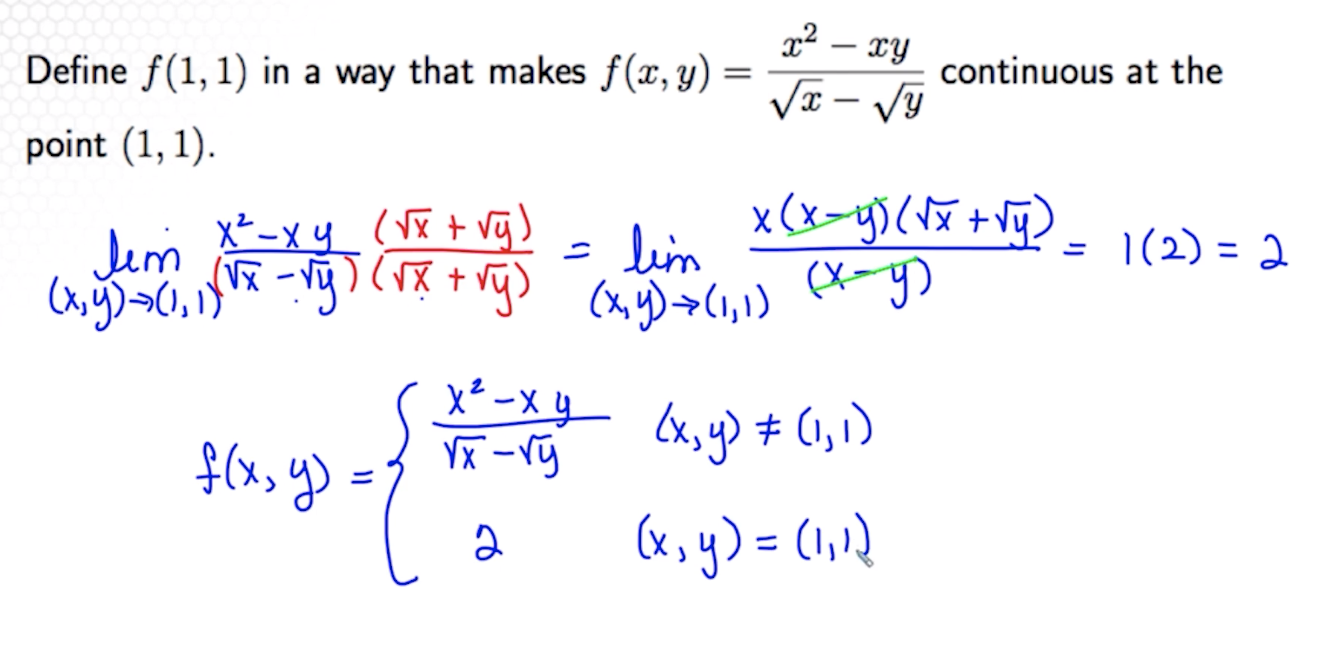 Define f(1, 1) in a way that makes f(x, y) = \frac{x^2 - xy}{\sqrt{x} - \sqrt{y}} continuous at the
point (1, 1).
\lim_{(x,y)→(1,1)} \frac{x^2 - xy}{(\sqrt{x} - \sqrt{y})} \frac{(\sqrt{x} + \sqrt{y})}{(\sqrt{x} + \sqrt{y})} = \lim_{(x,y)→(1,1)} \frac{x(x-y)(\sqrt{x} + \sqrt{y})}{(x-y)} = 1(2) = 2
f(x, y) = { \frac{x^2 - xy}{\sqrt{x} - \sqrt{y}} (x,y) ≠ (1,1)
2 (x,y) = (1,1)